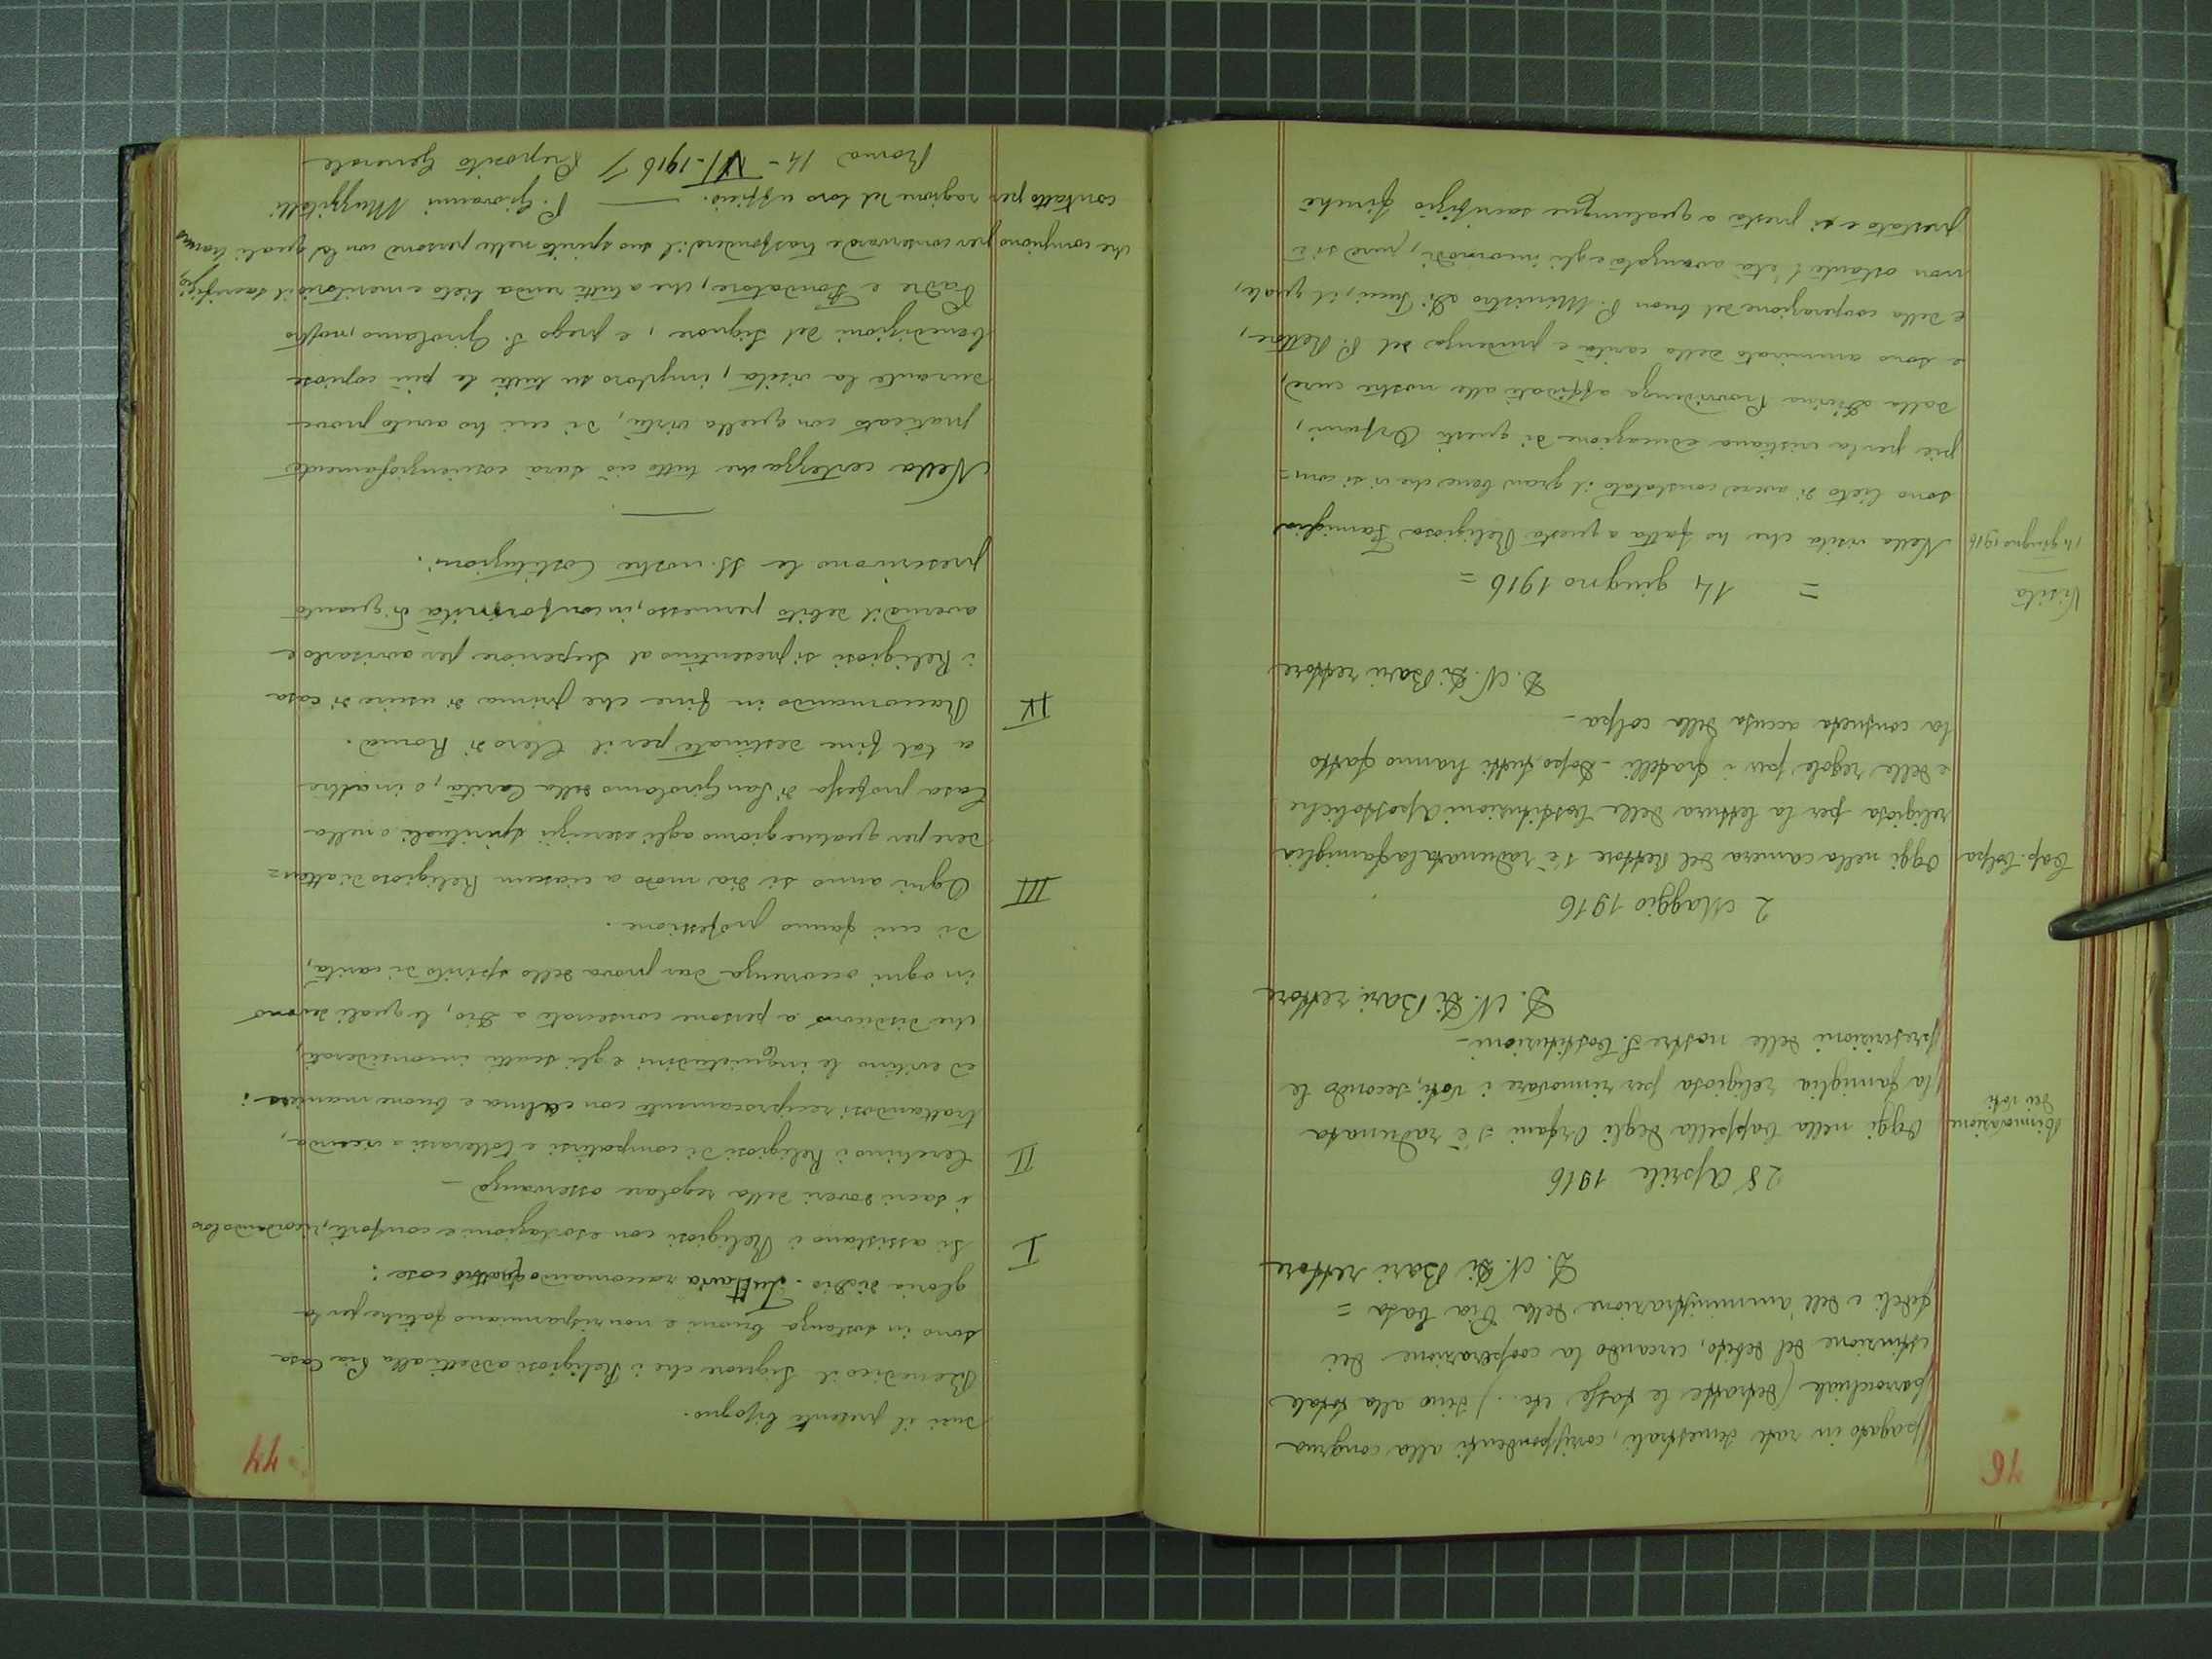 76
pagato in rate semestrali, corrispondenti alla congrua
parrocchiale (detratte le tasse etc..) sino alla totale
estinzione del debito, cercando la cooperazione dei
fedeli e dell'amministrazione della Pia Casa =
D. N. Di Bari rettore
28 Aprile 1916
Rinnovazione
dei voti
Oggi nella Cappella degli Orfani s'è radunata
la famiglia religiosa per rinnovare i voti, secondo le
prescrizioni delle nostre S. Costituzioni -
D. N. Di Bari rettore
2 Maggio 1916
Cap. Colpa
Oggi nella camera del Rettore s'è radunata la famiglia
religiosa per la lettura delle Costituzioni Apostoliche
e delle regole pei i fratelli - Dopo, tutti hanno fatto
la consueta accusa della colpa -
D. N. Di Bari rettore
= 14 giugno 1916 =
Visita
14 giugno 1916
Nella visita che ho fatta a questa Religiosa Famiglia
sono lieto di avere constatato il gran bene che vi si com=
pie per la cristiana educazione di questi Orfani,
dalla Divina Provvidenza affidati alle nostre cure,
e sono ammirato della carità e prudenza del P. Rettore,
e della cooperazione del buon P. Ministro Di Tucci, il quale,
non ostante l'età avanzata e gli incomodi, pure si è
prestato e si presta a qualunque sacrifizio finchè
44
duri il presente bisogno.
Benedico il Signore che i Religiosi addetti alla Pia Casa
sono in sostanza buoni e non risparmiano fatiche per la
gloria di Dio. Tuttavia raccomando quattro cose:
I
Si assistano i Religiosi con esortazioni e conforti, ricordando loro
i sacri doveri della regolare osservanza -
II
Cerchino i Religiosi di compatirsi e tollerarsi a vicenda,
trattandosi reciprocamente con calma e buone maniere;
ed evitino le inquietudini e gli scatti inconsiderati,
che disdicono a persone consecrate a Dio, le quali devono
in ogni occorrenza dar prova dello spirito di carità,
di cui fanno professione.
III
Ogni anno si dia modo a ciascun Religioso di atten=
dere per qualche giorno agli esercizii spirituali o nella
Casa professa di San Girolamo della Carità, o in altre
a tal fine destinate per il Clero di Roma.
IV
Raccomando in fine che prima di uscire di casa
i Religiosi si presentino al Superiore per avvisarlo e
averne il debito permesso, in conformità di quanto
prescrivono le SS. nostre Costituzioni.
Nella certezza che tutto ciò sarà coscienziosamente
praticato con quella virtù, di cui ho avuto prove
durante la visita, imploro su tutti le più copiose
benedizioni del Signore, e prego S. Girolamo, nostro
Padre e Fondatore, che a tutti renda lieto e meritorio il sacrifizio,
che compiono per conservare e trasfondere il suo spirito nelle persone con le quali hanno
contatto per ragione del loro ufficio. — P. Giovanni Muzzitelli
Roma 14 - VI - 1916 Preposito Generale